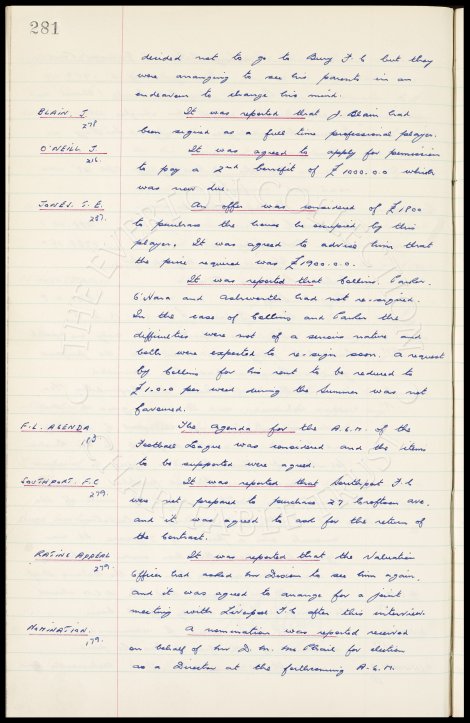 281
decided not to go to Bury F.C but they
were arranging to see his parents in an
endeavour to change his mind.
BLAIN. J
278
It was reported that J. Blain had
been signed as a full time professional player.
O'NEILL J.
216.
It was agreed to apply for permission
to pay a 2nd benefit of £1000.0.0 which
was now due.
JONES. T. E.
257.
An offer was considered of £1800
to purchase the house he occupied by this
player. It was agreed to advise him that
the price required was £1900.0.0.
It was reported that Collins, Parker,
O'Hara and Ashworth had not re-signed.
In the case of Collins and Parker the
difficulties were not of a serious nature and
both were expected to re-sign soon. A request
by Collins for his rent to be reduced to
£1.0.0 per week during the Summer was not
favoured.
F.L. AGENDA
183
The agenda for the A.G.M. of the
Football League was considered and the items
to be supported were agreed.
SOUTHPORT. F.C
279.
It was reported that Southport F.C
were not prepared to purchase 27 Croftson ave.
and it was agreed to ask for the return of
the Contract.
RATING APPEAL
279.
It was reported that the Valuation
Officer had asked Mr Divson to see him again.
and it was agreed to arrange for a joint
meeting with Liverpool F.C after this interview.
NOMINATION.
179.
A nomination was reported received
on behalf of Mr D. M. Mc Phail for election
as a Director at the forthcoming A.G.M.
THE EVERTON COLLECTION
CHARITABLE TRUST